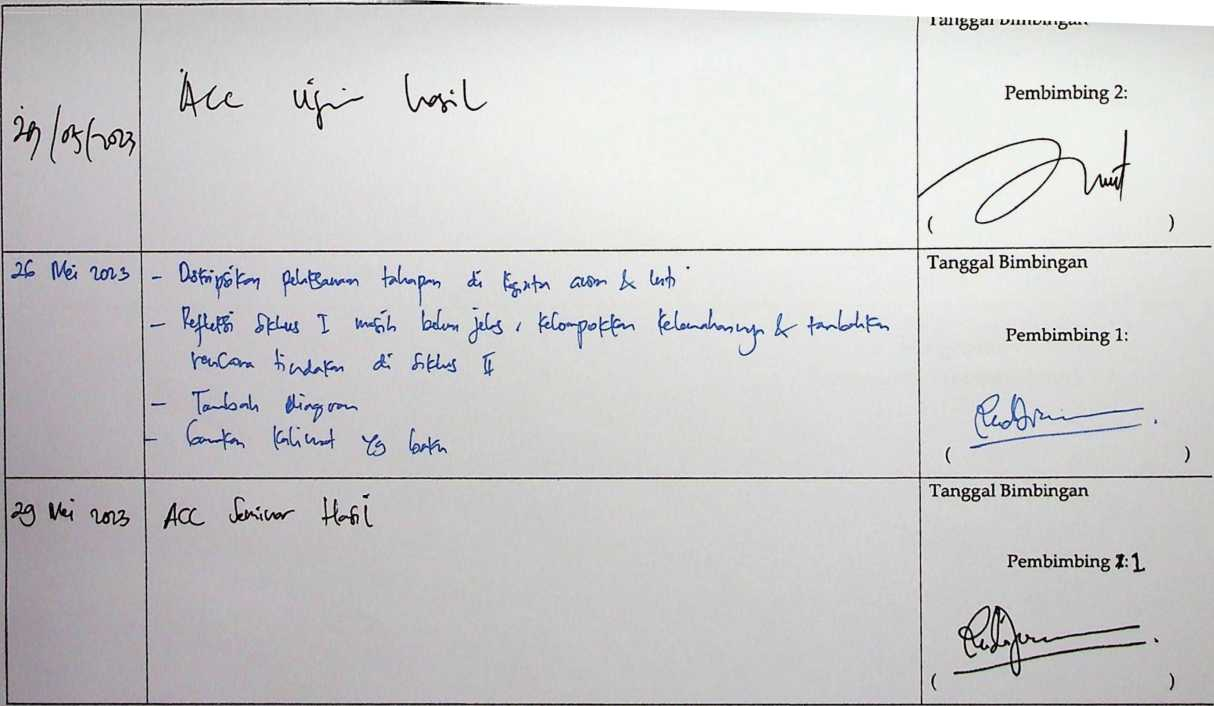 Tanggal Bimbingan
29/05/2023
ACC Ujian hasil
Pembimbing 2:
( )
26 Mei 2023
- Deskripsikan pelaksanaan tahapan di kegiatan awal & inti
- Refleksi Siklus I masih belum jelas, kelompokkan kelemahannya & tambahkan
rencana tindakan di Siklus II
- Tambah diagram
- Gunakan kalimat yg baku
Tanggal Bimbingan
Pembimbing 1:
( )
29 Mei 2023
ACC Seminar Hasil
Tanggal Bimbingan
Pembimbing 1
( )